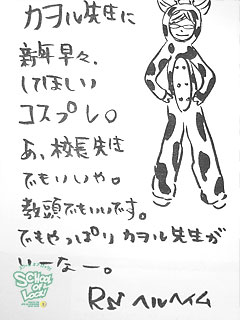 カヲル先生に
新年早々、
してほしい
コスプレ。
あ、校長先生
でもいいや。
教頭でもいいです。
でもやっぱりカヲル先生が
いーなー。
RN ヘルヘイム
SCHOOL
OF LOCK!